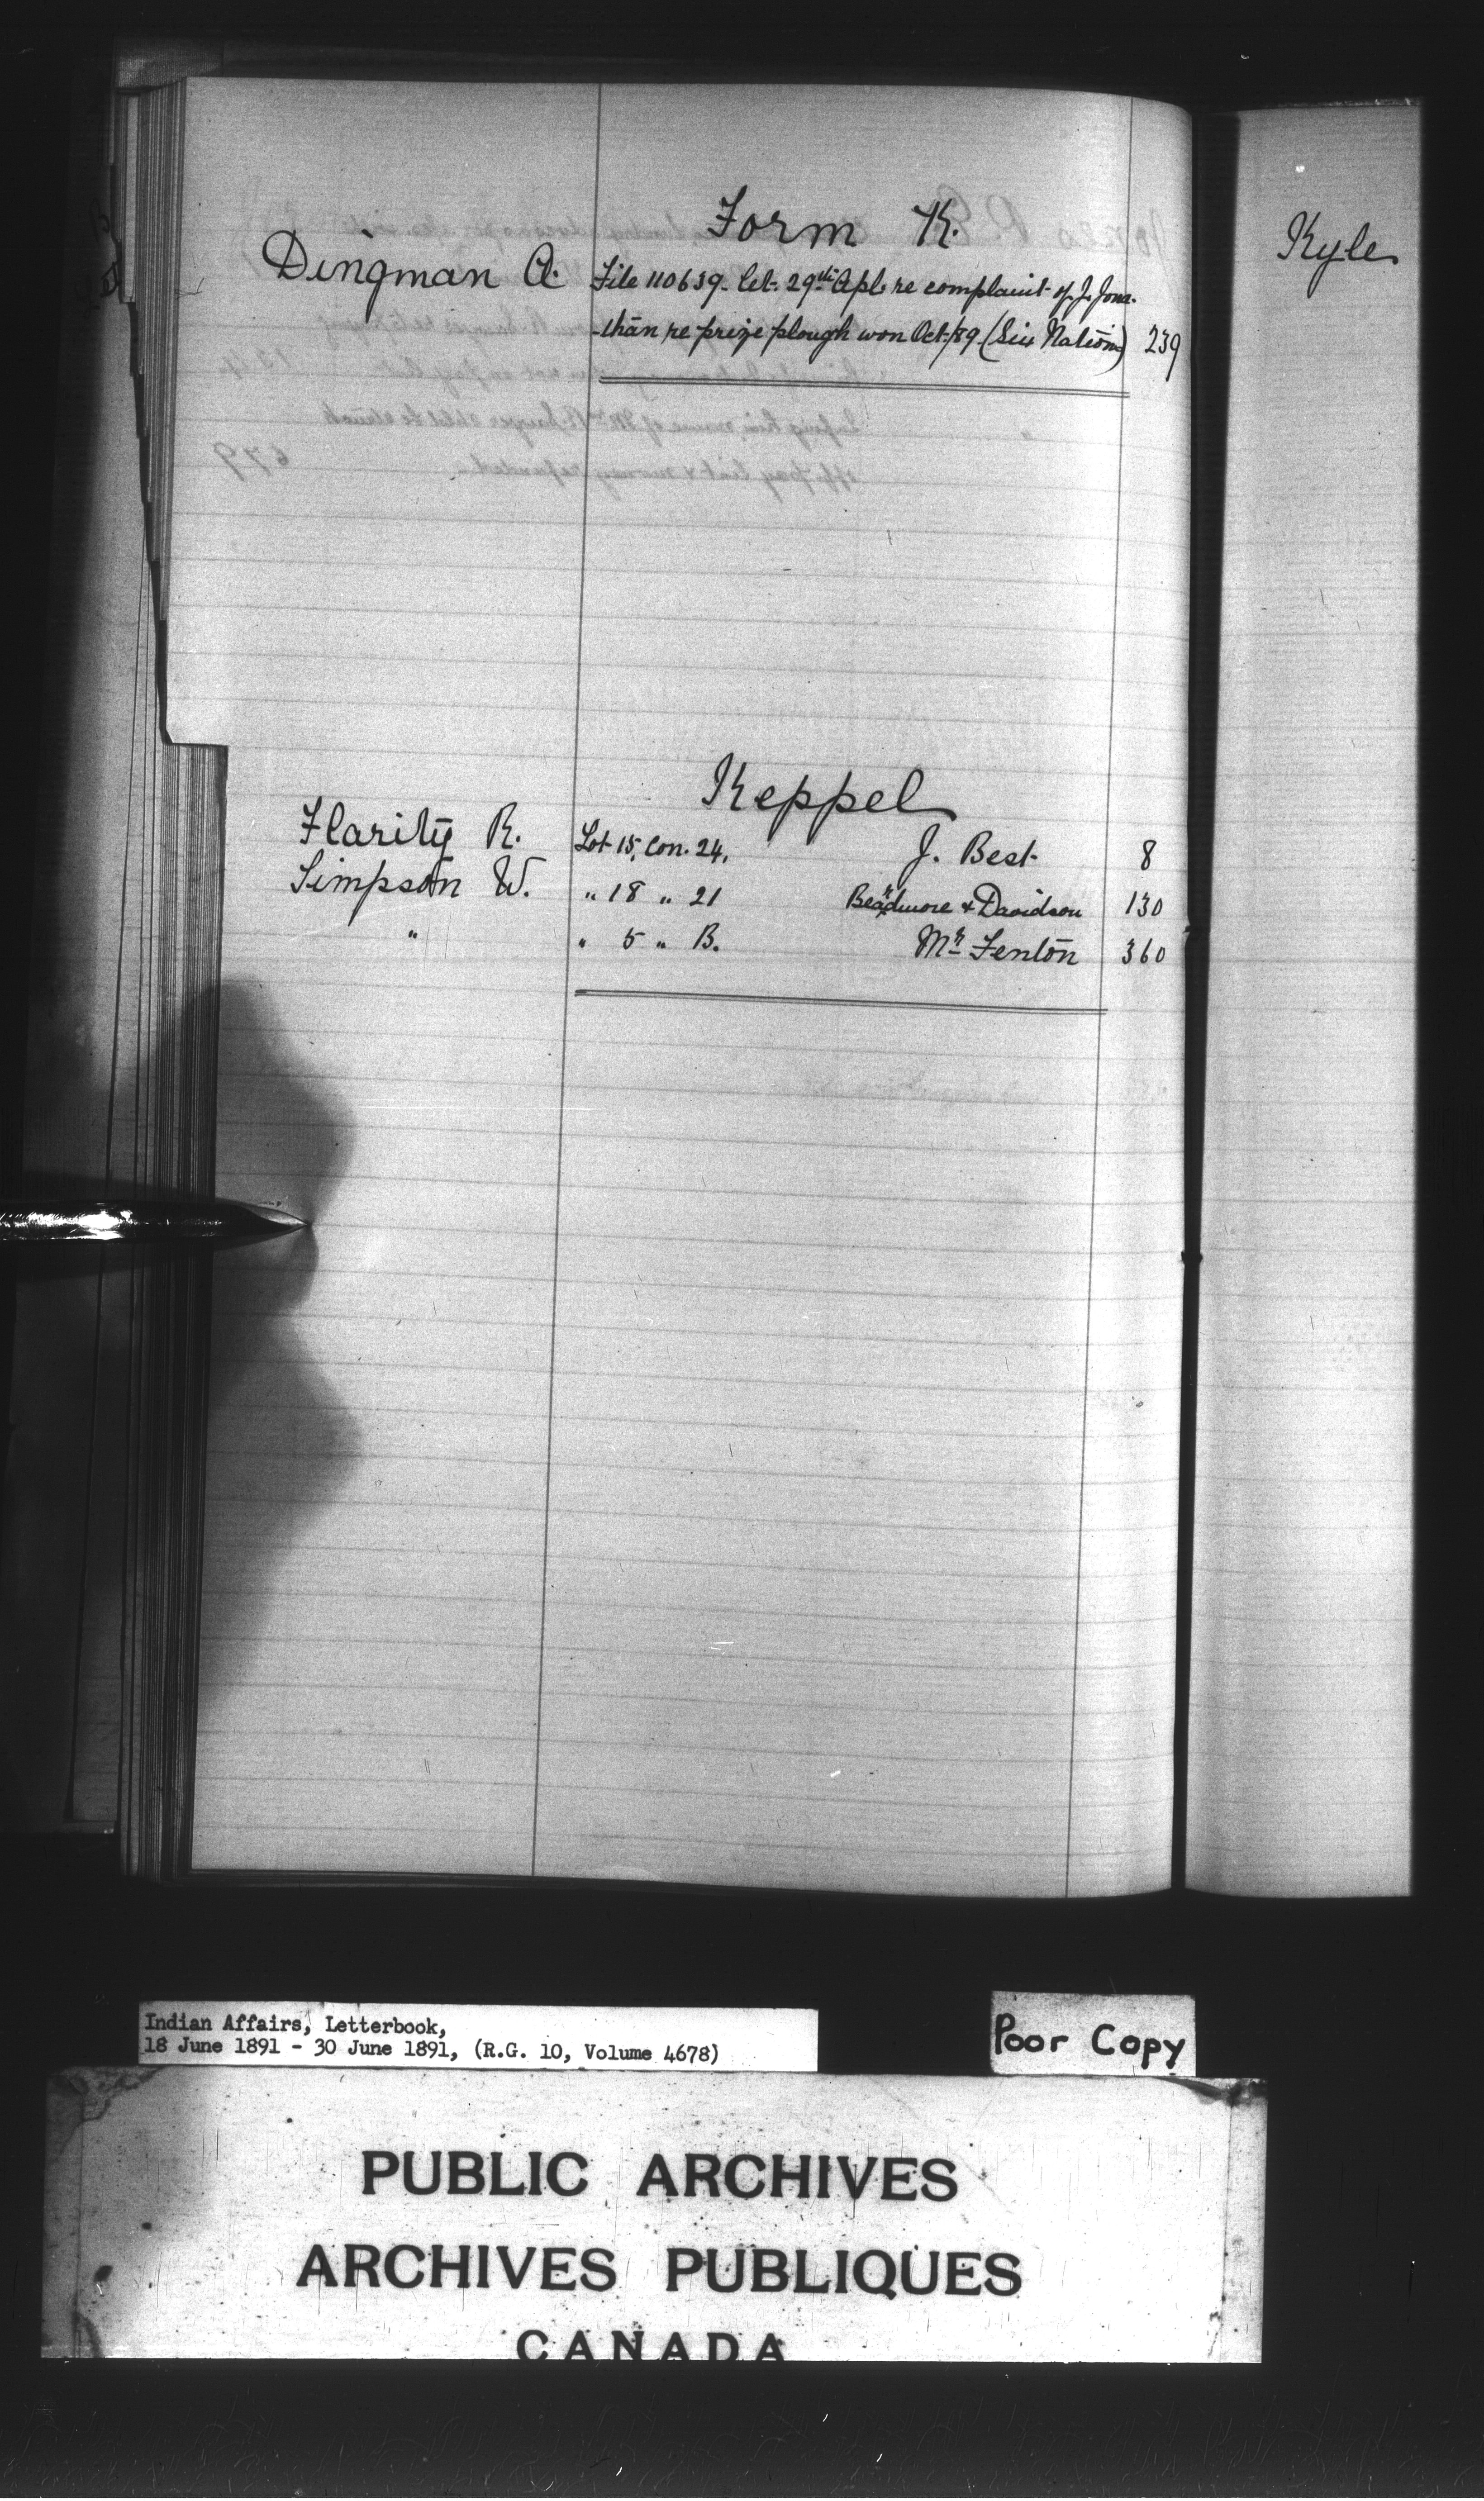 Form K.
Dingman A. File 110639. let. 29th Apl. re complaint of J. Jona-
-than re prize plough won Oct/89. (Six Nations) 239
Keppel
Flarity R. Lot 15, Con. 24, J. Best 8
Simpson W. " 18 " 21 Beardmore & Davidson 130
" " 5 " B. Mr Fenton 360
Kyle
Indian Affairs, Letterbook,
18 June 1891 - 30 June 1891, (R.G. 10, Volume 4678)
Poor Copy
PUBLIC ARCHIVES
ARCHIVES PUBLIQUES
CANADA